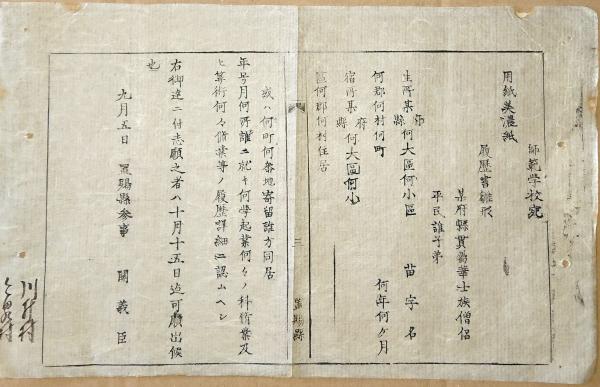 師範學校宛
用紙美濃紙
履歴書雛形
某府縣貫属華士族僧侶
平民誰子弟
生所某府縣何大區何小區 苗字名
何郡何村何町 何年何ヶ月
宿所某府縣何大區何小
區何郡何村住居
三
置賜縣
或ハ何町何番地寄留誰方同居
年号月何所誰ニ就キ何學起業何々ノ科術業及
ヒ算術何々脩業等ノ履歴詳細ニ認ムヘシ
右御達ニ付志願之者ハ十月十五日迄可願出候
也
九月五日 置賜縣参事 関義臣